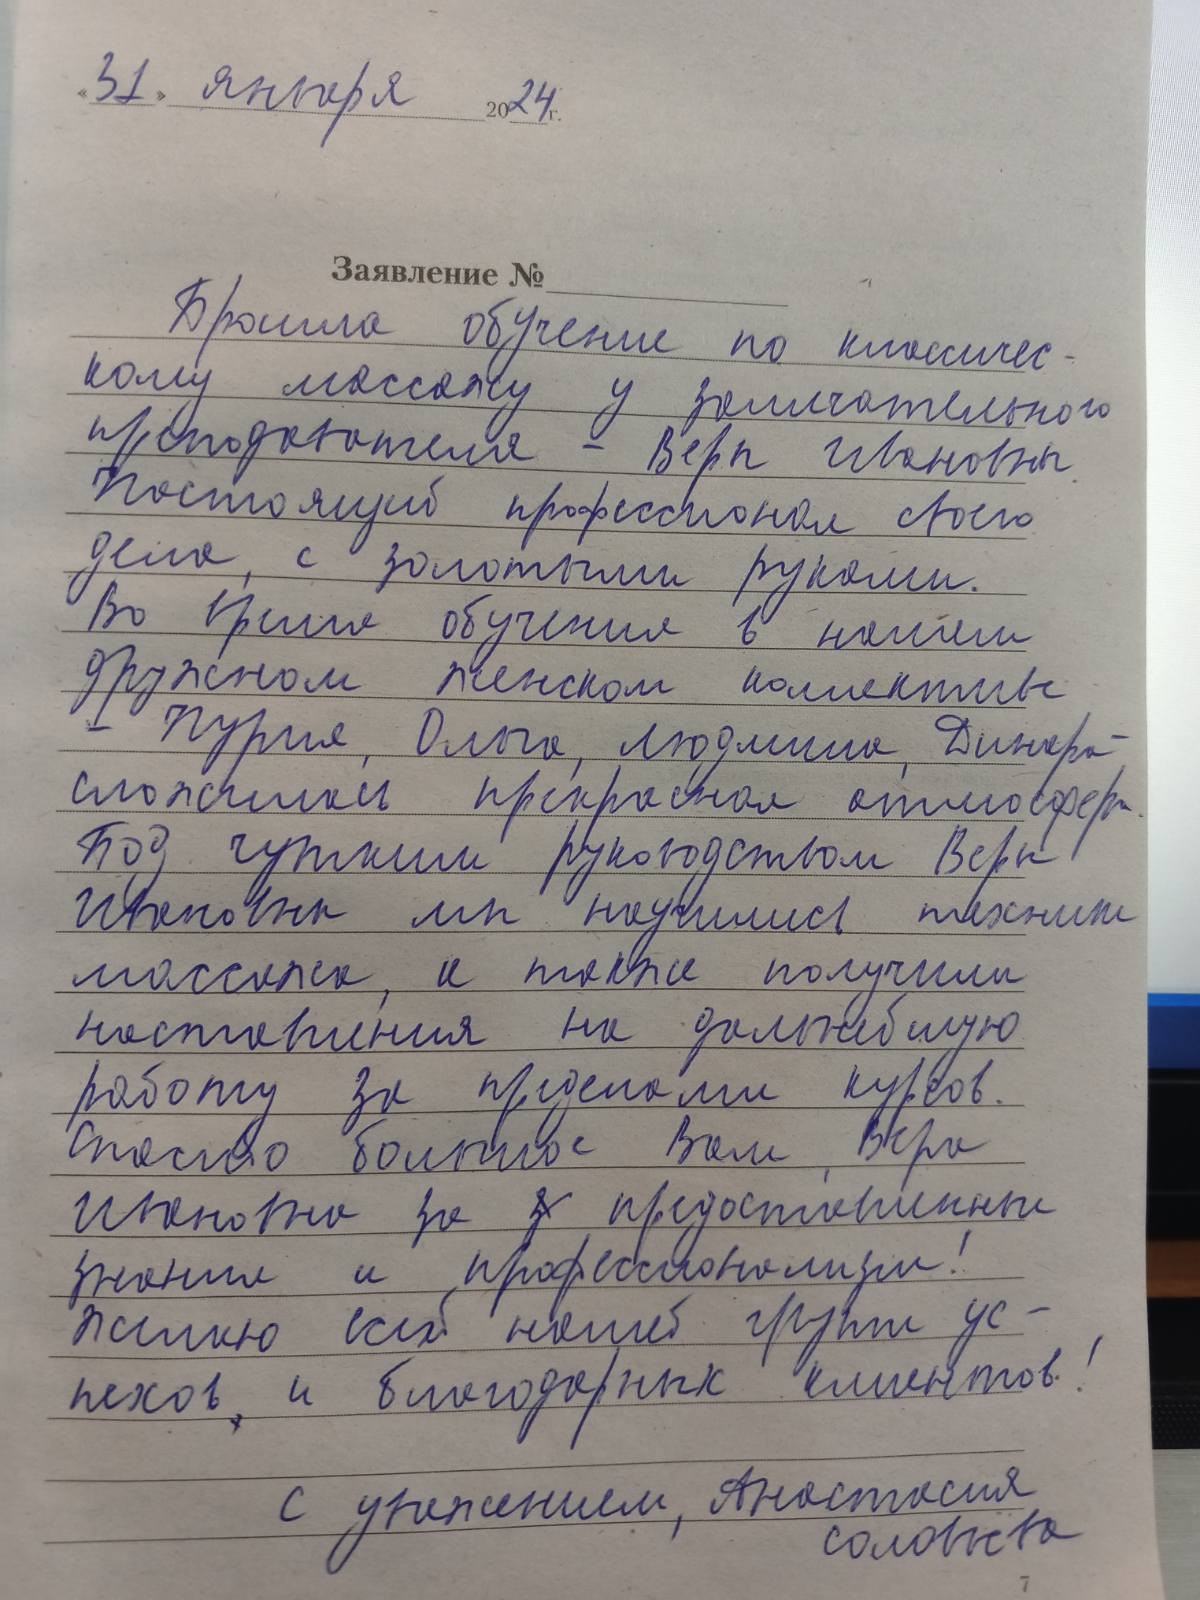 «31» января 2024г.
Заявление №
Прошла обучение по классичес-
кому массажу у замечательного
преподавателя – Веры Ивановны
Настоящий профессионал своего
дела, с золотыми руками.
Во время обучения в нашем
дружном женском коллективе
– Нурия, Ольга, Людмила, Динара –
сложилась прекрасная атмосфера.
Под чутким руководством Веры
Ивановны мы научились технике
массажа, а также получили
наставления на дальнейшую
работу за пределами курсов.
Спасибо большое Вам, Вера
Ивановна за предоставленные
знания и профессионализм!
Желаю всей нашей группе ус-
пехов, и благодарных клиентов!
С уважением, Анастасия
Соловьева
7